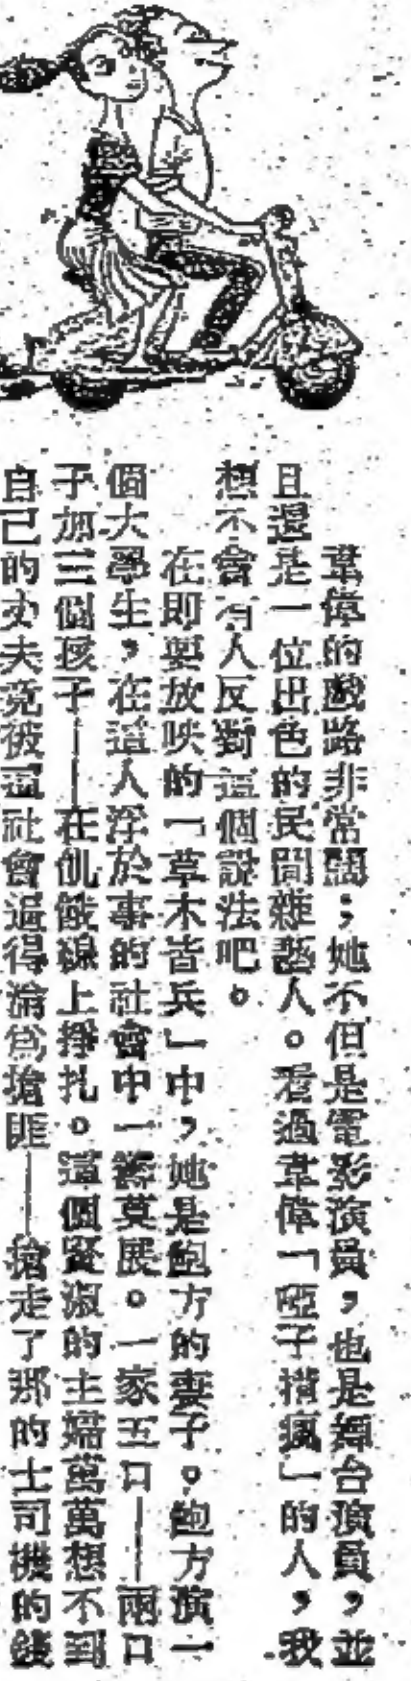 韋偉的戲路非常濶；她不但是電影演員，也是舞台演員，並
且還是一位出色的民間雜藝人。看過韋偉「啞子揹瘋」的人，我
想不會有人反對這個說法吧。
在即要放映的「草木皆兵」中，她是鮑方的妻子。鮑方演一
個大學生，在這人浮於事的社會中一籌莫展。一家五口——兩口
子加三個孩子——在飢餓線上掙扎。這個賢淑的主婦萬萬想不到
自己的丈夫竟被這社會逼得淪爲搶匪——搶走了那的士司機的錢